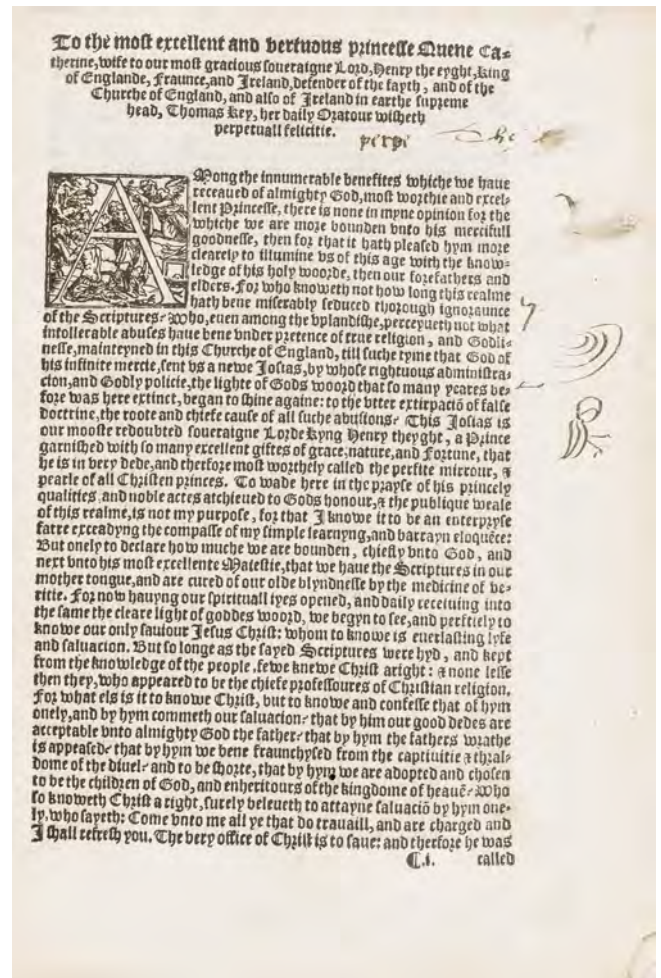 To the most excellent and vertuous princesse Quene Ca=
therine, wife to our most gracious soueraigne Lord, Henry the eyght, king
of Englande, Fraunce, and Ireland, defender of the fayth, and of the
Churche of England, and also of Ireland in earthe supreme
head, Thomas Key, her daily Oratour wisheth
perpetuall felicitie.
perpe
AMong the innumerable benefites whiche we haue
receaued of almighty God, most worthie and excel-
lent Princesse, there is none in myne opinion for the
whiche we are more bounden vnto his mercifull
goodnesse, then for that it hath pleased hym more
clearely to illumine vs of this age with the know-
ledge of his holy woorde, then our forefathers and
elders. For who knoweth not how long this realme
hath bene miserably seduced thorough ignoraunce
of the Scriptures? Who, euen among the vplandishe, perceyueth not what
intollerable abuses haue bene vnder pretence of true religion, and Godli-
nesse, mainteyned in this Churche of England, till suche tyme that God of
his infinite mercie, sent vs a newe Josias, by whose rightuous administra-
cion, and Godly policie, the lighte of Gods woord that so many yeares be-
fore was here extinct, began to shine againe: to the vtter extirpatiō of false
doctrine, the roote and chiefe cause of all suche abusions? This Josias is
our mooste redoubted soueraigne Lorde Kyng Henry theyght, a Prince
garnished with so many excellent giftes of grace, nature, and Fortune, that
he is in very dede, and therfore most worthely called the perfite mirrour, &
pearle of all Christen princes. To wade here in the prayse of his princely
qualities, and noble actes atchieued to Gods honour, & the publique weale
of this realme, is not my purpose, for that I knowe it to be an enterpryse
farre exceadyng the compasse of my simple learnyng, and barrayn eloquēce:
But onely to declare how muche we are bounden, chiefly vnto God, and
next vnto his most excellente Maiestie, that we haue the Scriptures in our
mother tongue, and are cured of our olde blyndnesse by the medicine of ve-
ritie. For now hauyng our spirituall iyes opened, and daily receiuing into
the same the cleare light of goddes woord, we begyn to see, and perfitely to
knowe our only sauiour Jesus Christ: whom to knowe is euerlasting lyfe
and saluacion. But so longe as the sayed Scriptures were hyd, and kept
from the knowledge of the people, fewe knewe Christ aright: & none lesse
then they, who appeared to be the chiefe professoures of Christian religion.
For what els is it to knowe Christ, but to knowe and confesse that of hym
onely, and by hym commeth our saluacion? that by him our good dedes are
acceptable vnto almighty God the father? that by hym the fathers wrathe
is appeased? that by hym we bene fraunchysed from the captiuitie & thral-
dome of the diuel? and to be shorte, that by hym we are adopted and chosen
to be the children of God, and enheritours of the kingdome of heauē? Who
so knoweth Christ a right, surely beleueth to attayne saluaciō by hym one-
ly, who sayeth: Come vnto me all ye that do trauaill, and are charged and
I shall refresh you. The very office of Christ is to saue: and therfore he was
C.i. called